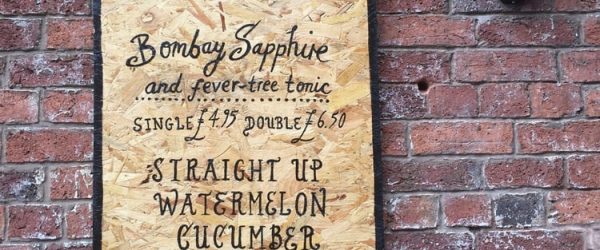 Bombay Sapphire
and fever-tree tonic
SINGLE £4.95 DOUBLE £6.50
STRAIGHT UP
WATERMELON
CUCUMBER